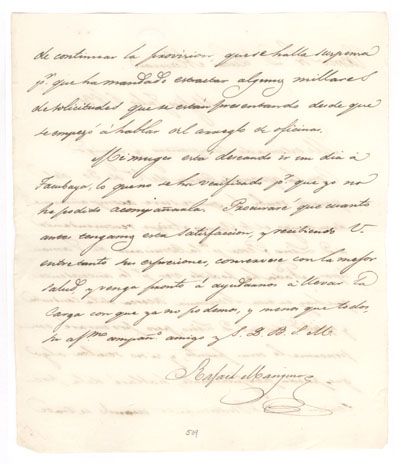 de continuar la provision que se halla suspensa
pr. que ha mandado estractar algunos millares
de solicitudes que se están presentando desde que
se empezó á hablar del arreglo de oficina.
Mi muger está deseando ir un dia á
Tacubaya, lo que no se ha verificado pr. que yo no
he podido acompañarla. Procuraré que cuanto
antes tengamos esta satisfacion, y recibiendo V.
entretanto sus espresiones, conservese con la mejor
salud, y venga pronto á ayudarnos á llevar la
carga con que ya no podemos, y menos que todos,
su afmo. compañº. amigo y S. Q. B. S. M.
Rafael Mangino
509